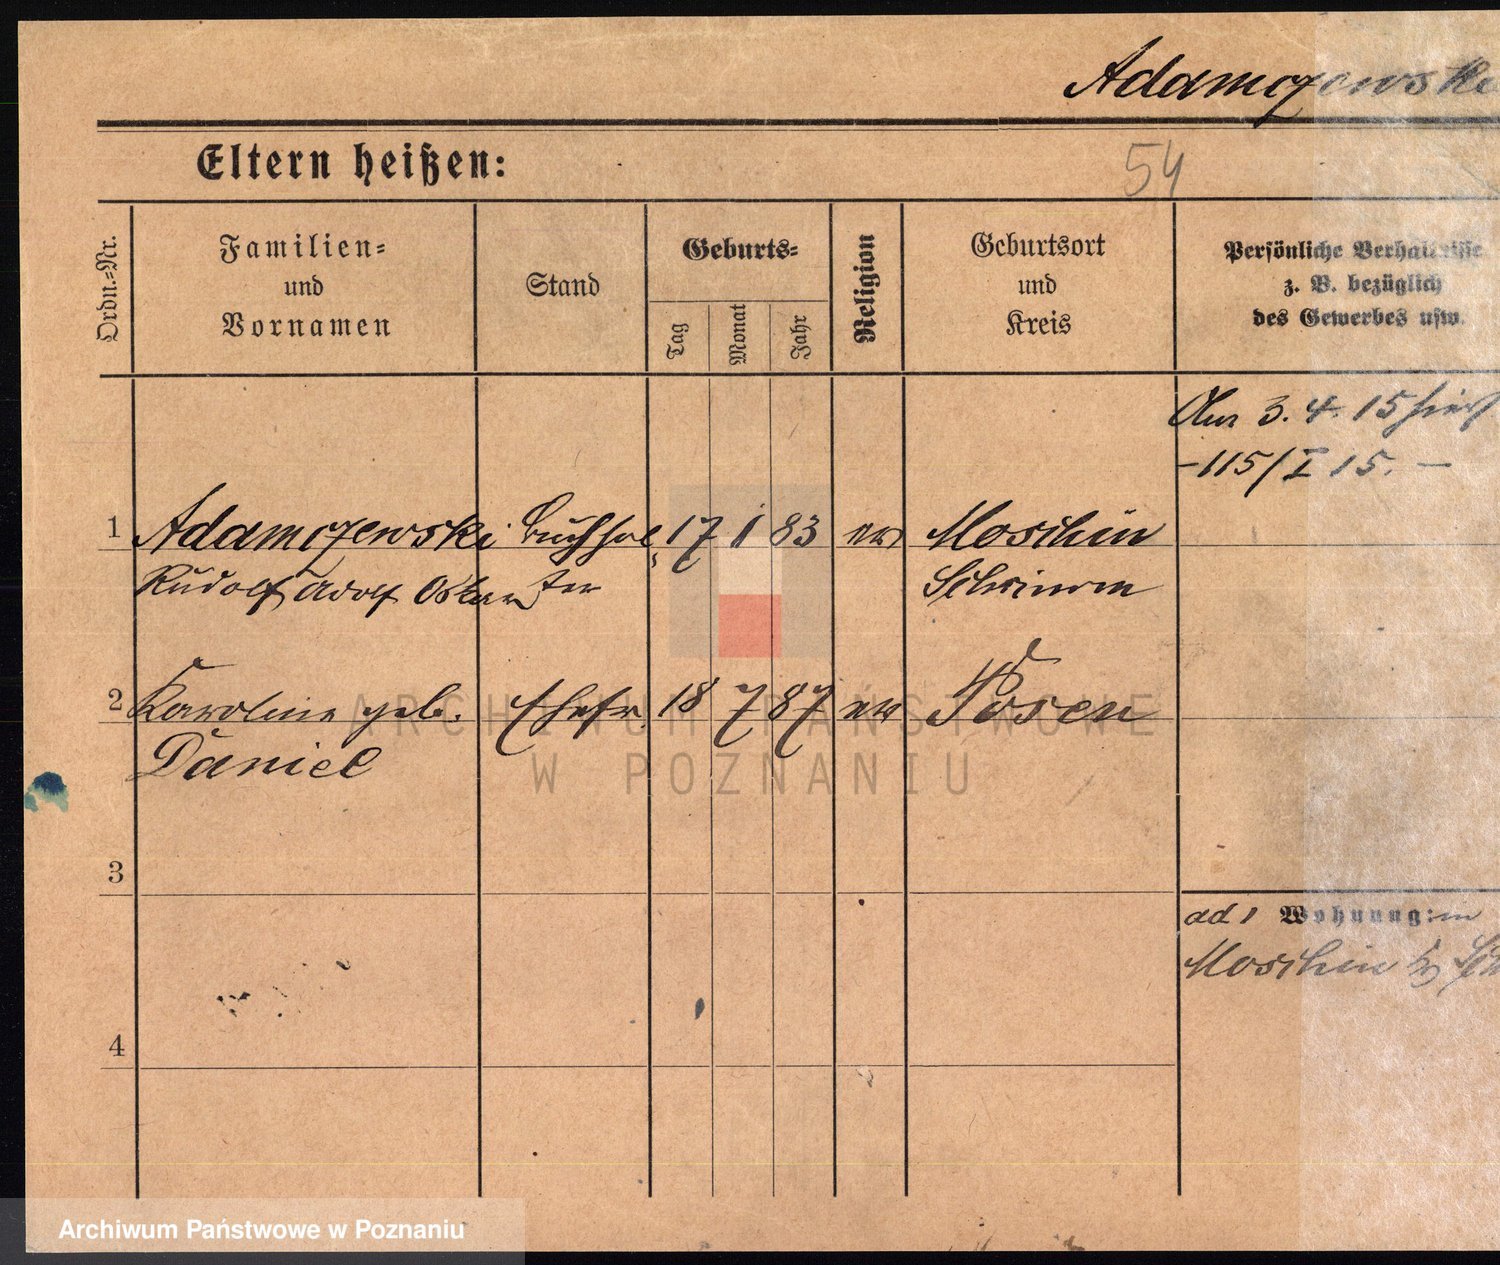 Adamczewski
Eltern heißen:
54
Ordn.=Nr.
Familien=
und
Vornamen
Stand
Geburts=
Tag
Monat
Jahr
Religion
Geburtsort
und
Kreis
Persönliche Verhältnisse
z. B. bezüglich
des Gewerbes usw.
Am 3. 4. 15 hier
-115/I 15. -
1 Adamczewski Buchhal- 17 1 83 ev Moschin
Rudolf Adolf Oskar ter Schrimm
2 Karoline geb. Ehefr. 18 7 87 ev Posen
Daniel
3
ad 1 Wohnung: in
Moschin
4
ARCHIWUM PAŃSTWOWE
W POZNANIU
Archiwum Państwowe w Poznaniu